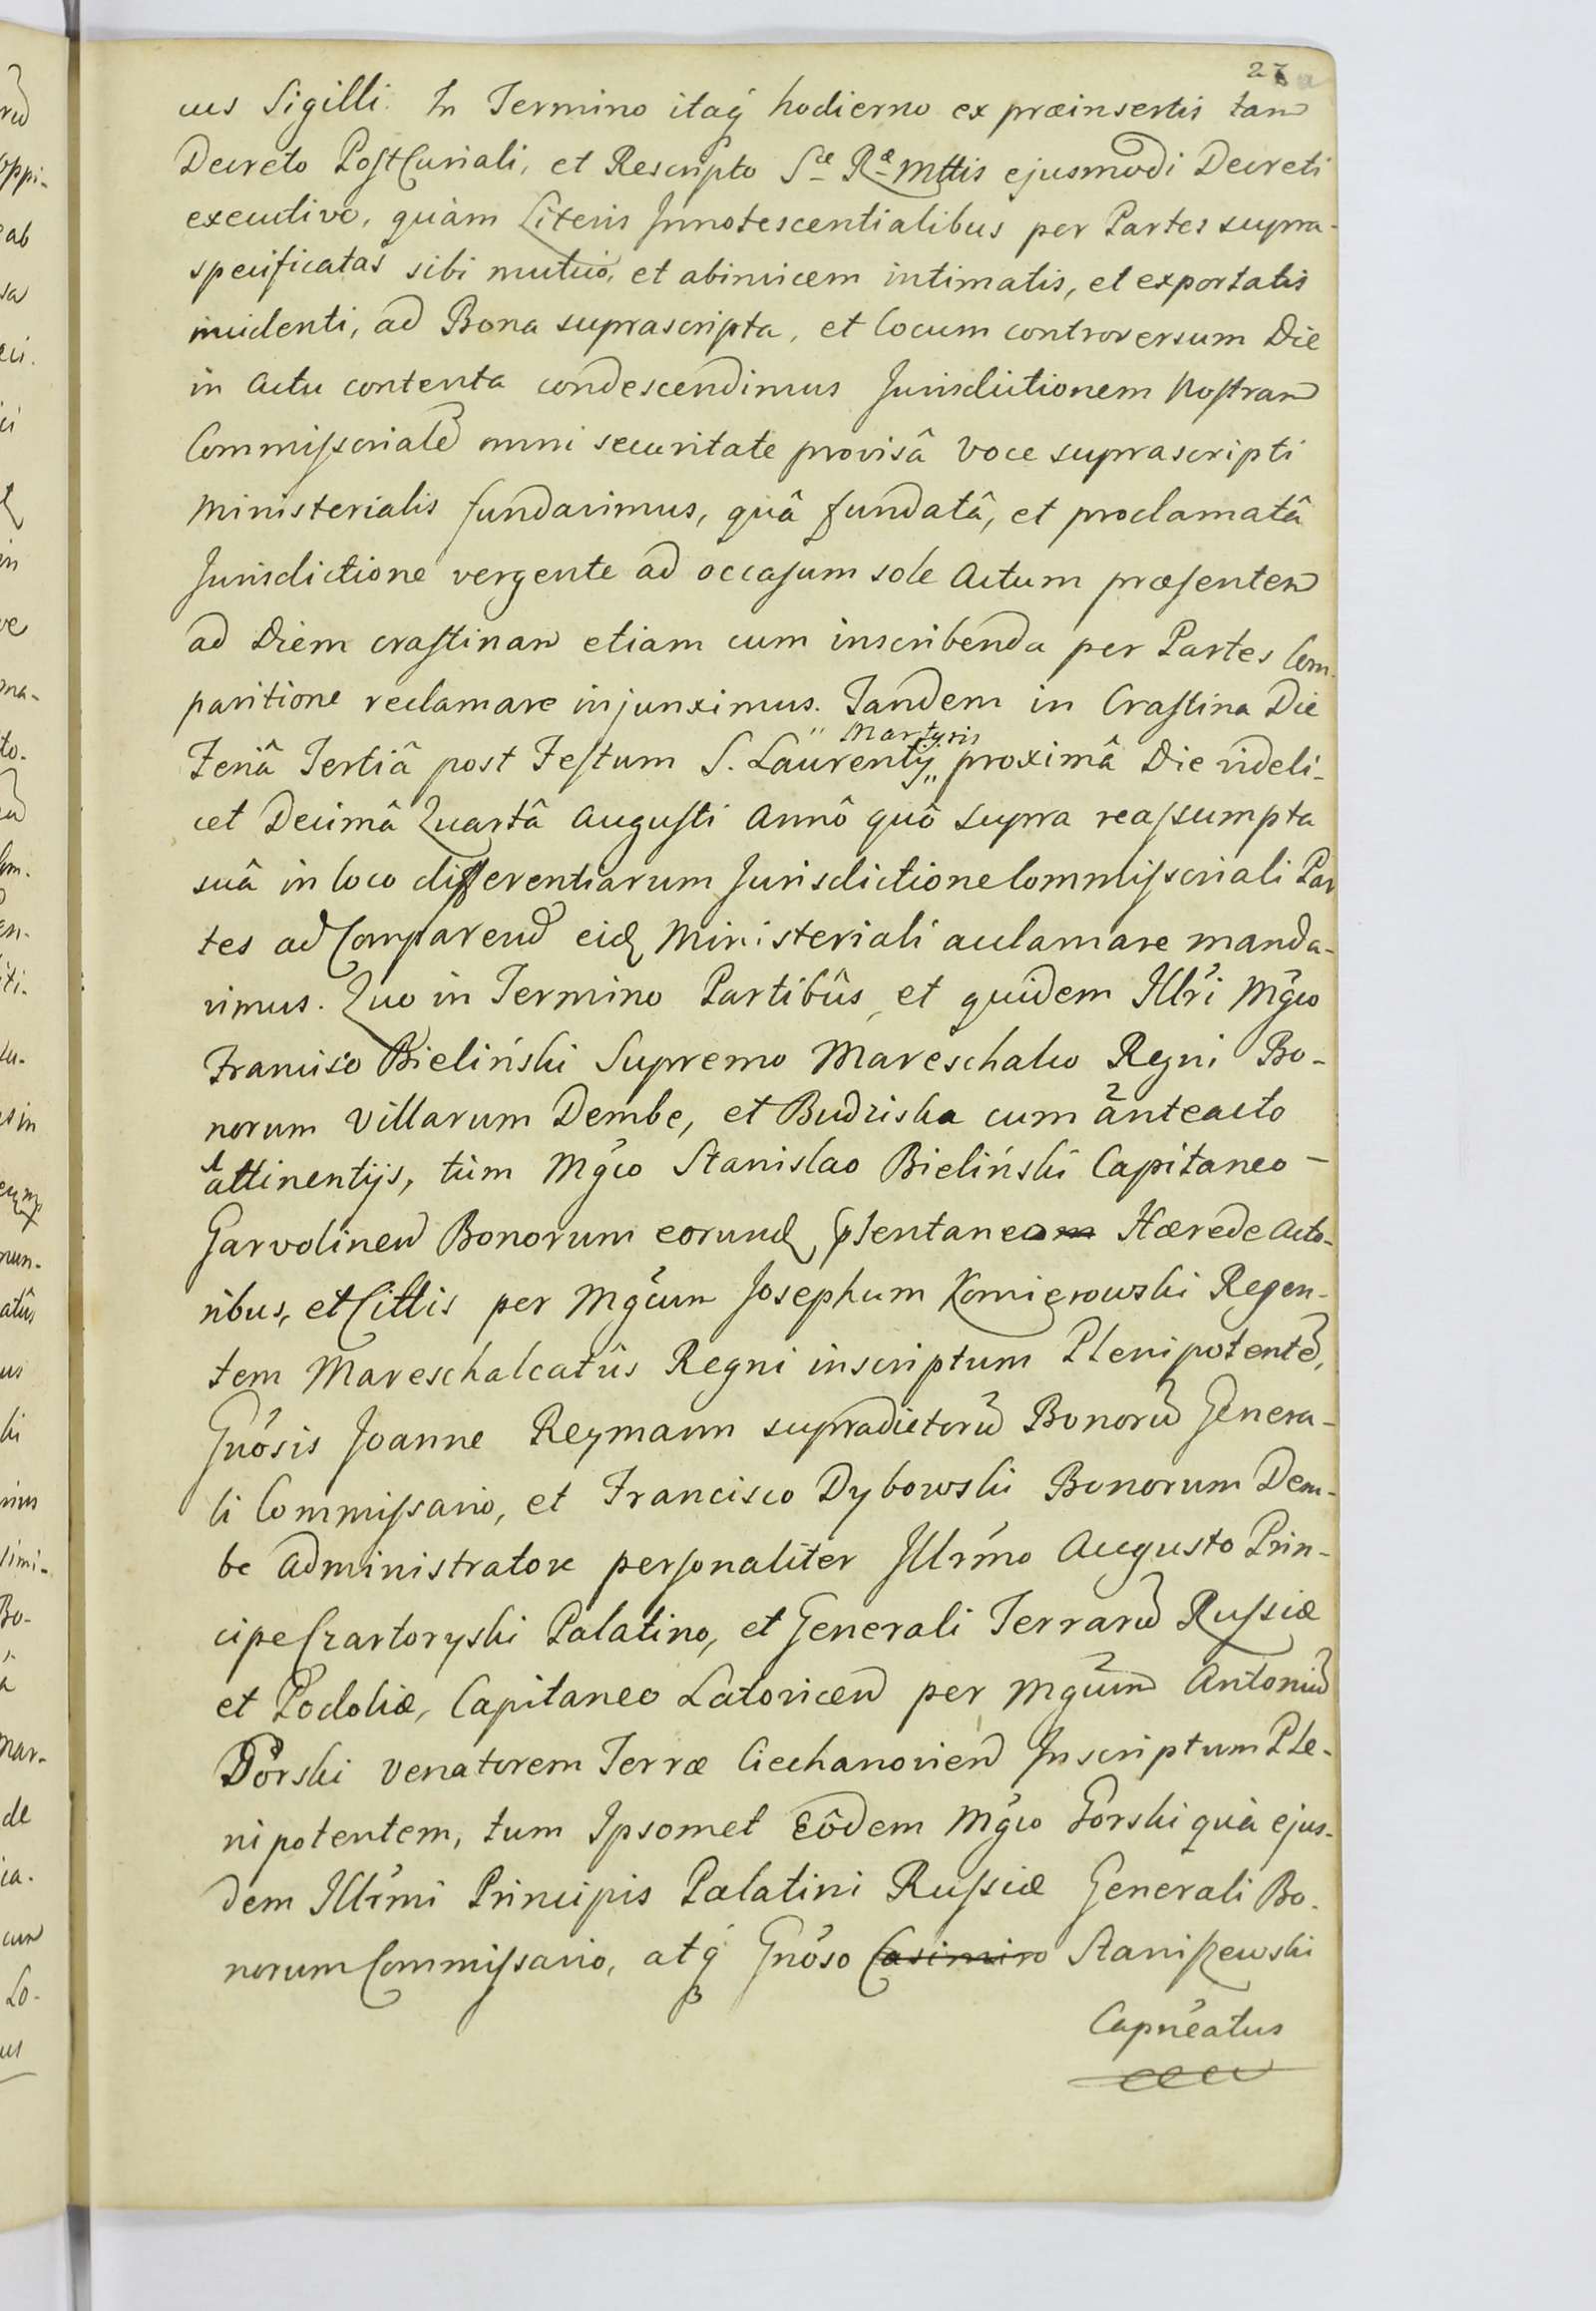 27
cus Sigilli. In Termino itaq́ hodierno ex præinsertis tam
Decreto PostCuriali, et Rescripto Sæ Ræ Mttis ejusmodi Decreti
executivo, quàm Literis Innotescentialibus per Partes supra-
specificatas sibi mutuò, et abinvicem intimatis, et exportatis
incidenti, ad Bona suprascripta, et locum controversum Die
in Actu contenta condescendimus Jurisdictionem Nostram
Commissorialẽ omni securitate provisâ voce suprascripti
Ministerialis fundavimus, quâ fundatâ, et proclamatâ
Jurisdictione vergente ad occasum sole Actum præsentem
ad Diem crastinam etiam cum inscribenda per Partes Com-
paritione reclamare injunximus. Tandem in Crastina Die
Martyris
Feriâ Tertiâ post Festum S. Laurentij,, proximâ Die videli-
cet Decimâ Quartâ Augusti Annô quô supra reassumpta
suâ in loco differentiarum Jurisdictione Commissoriali Par
tes ad Comparend eid Ministeriali acclamare manda-
vimus. Quo in Termino Partibûs, et quidem Illr̃i Mg̃co
Francisco Bieliński Supremo Mareschalco Regni Bo-
norum Villarum Dembe, et Budziska cum ãnteacto
attinentijs, tùm Mg̃co Stanislao Bieliński Capitaneo -
Garvolinen Bonorum eorund pr̃sentaneo Hærede Acto-
ribus, et Cittis per Mg̃cum Josephum Komierowski Regen-
tem Mareschalcatûs Regni inscriptum Plenipotentẽ,
Gnõsis Joanne Reymann supradictorũ Bonorũ Genera-
li Commissario, et Francisco Dybowski Bonorum Dem-
be Administratore personaliter Illr̃mo Augusto Prin-
cipe Czartoryski Palatino, et Generali Terrarũ Russiæ
et Podoliæ, Capitaneo Latovicen per Mgcum Antoniũ
Górski Venatorem Terræ Ciechanovien Inscriptum Ple-
nipotentem, tum Ipsomet Eôdem Mg̃co Górski quà ejus-
dem Illr̃mi Principis Palatini Russiæ Generali Bo-
norum Commissario, atq́ Gnõso Casimiro Staniszewski
Capnẽatus